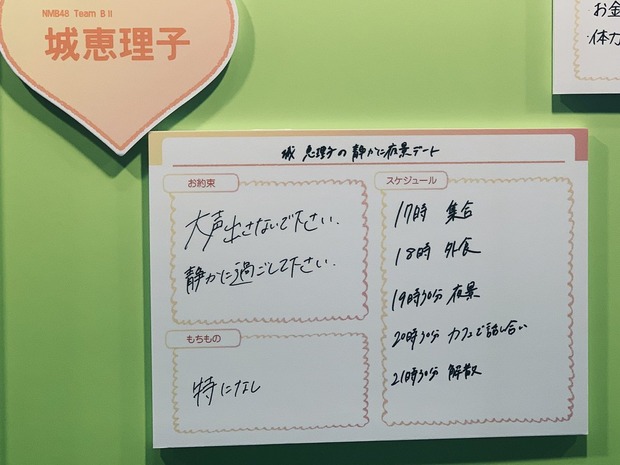 NMB48 Team BⅡ
城恵理子
お金
・体力
城 恵理子の静かに夜景デート
お約束
大声出さないで下さい.
静かに過ごして下さい.
もちもの
特になし
スケジュール
17時 集合
18時 外食
19時30分 夜景
20時30分 カフェで話し合い
21時30分 解散